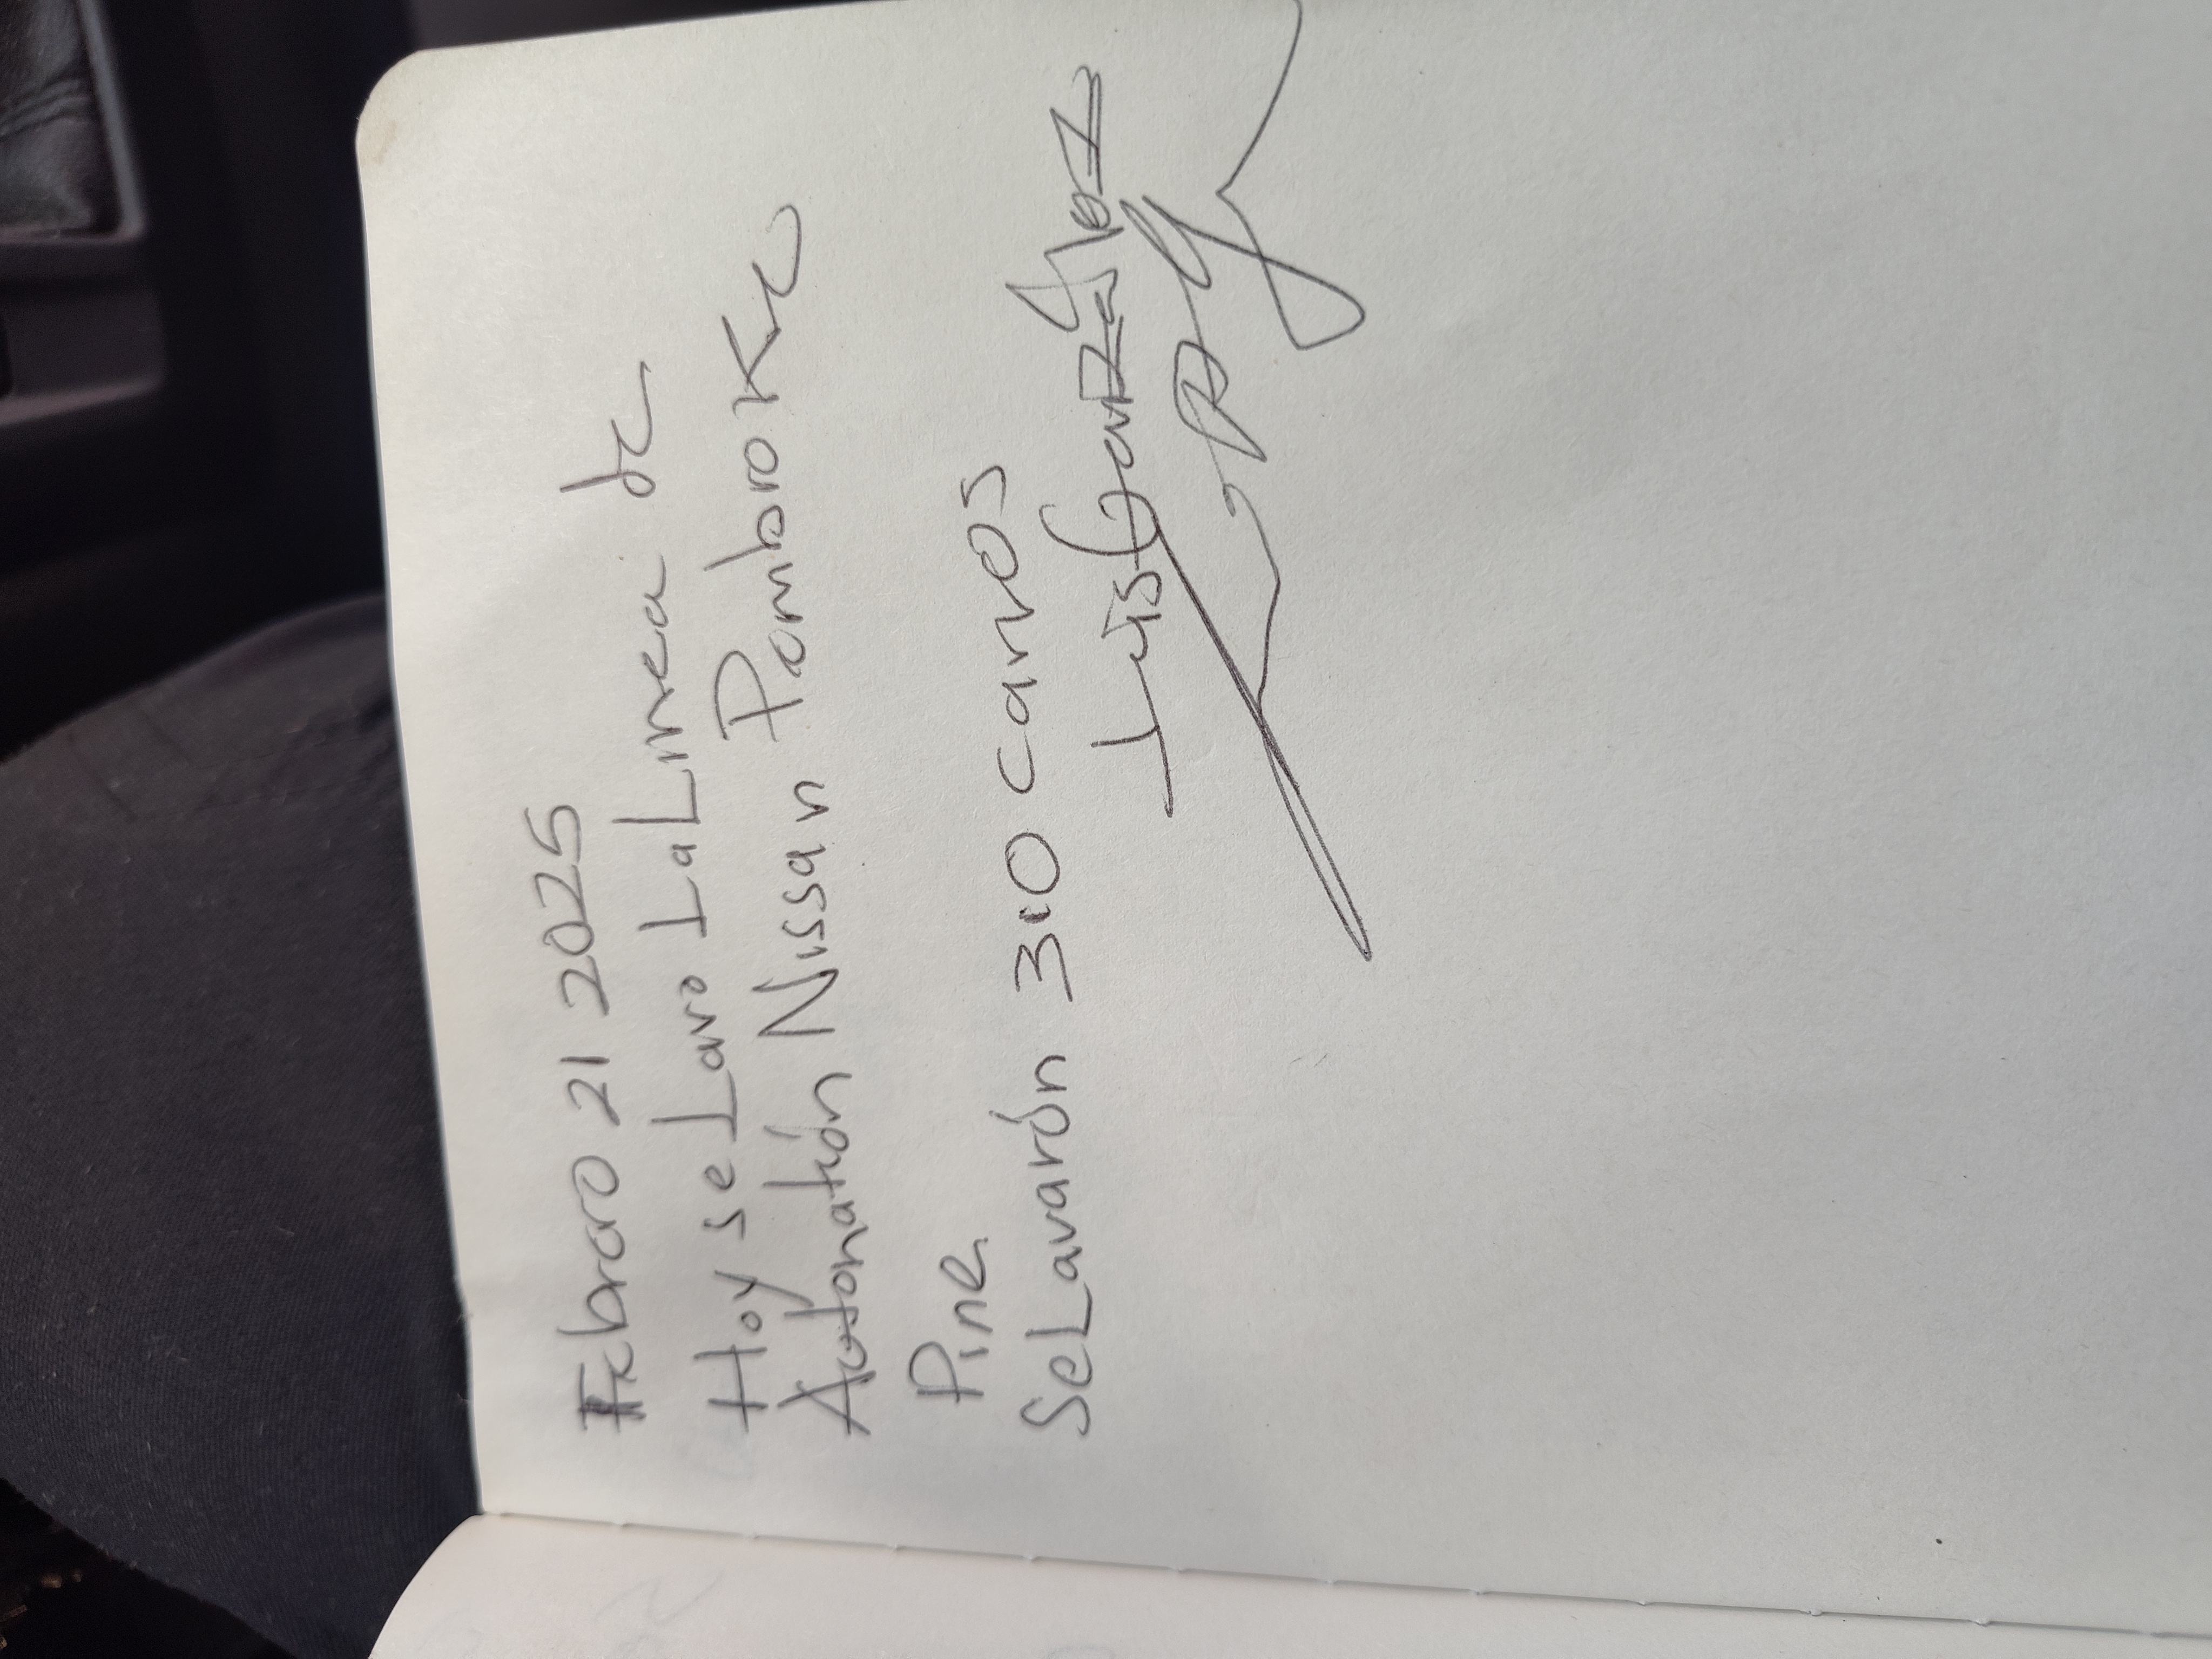 Febrero 21 2025
Hoy se Lavo La Linea de
Automatión Nissan Pembroke
Pine
Se Lavarón 310 carros
Luis